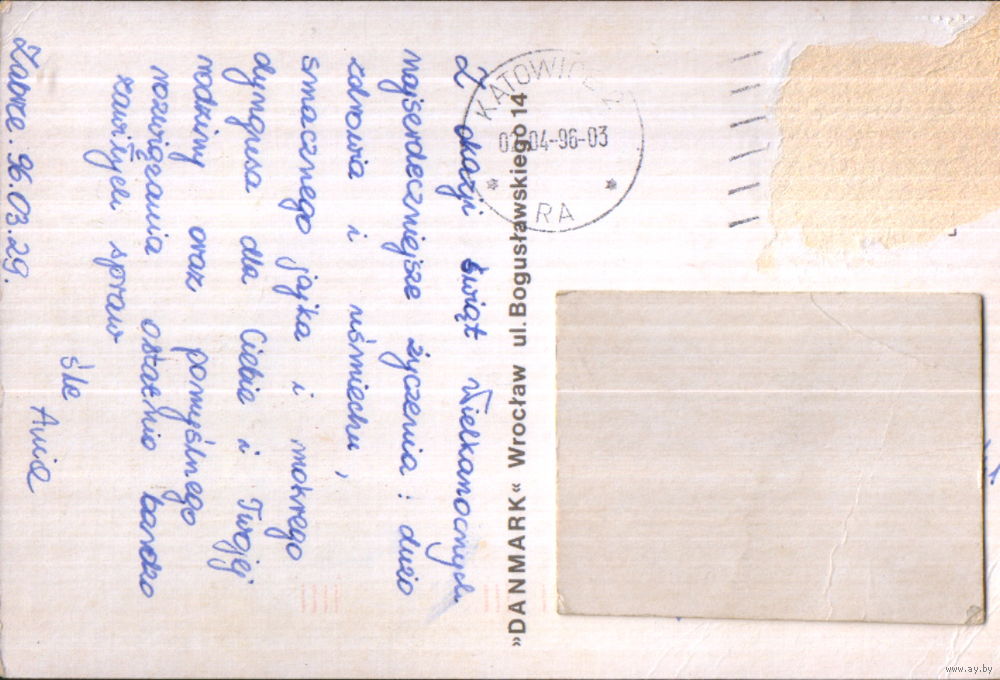 Zabrze. 96.03.29.
Z okazji Świąt Wielkanocnych
najserdeczniejsze życzenia: dużo
zdrowia i uśmiechu,
smacznego jajka i mokrego
dyngusa dla Ciebie i Twojej
rodziny oraz pomyślnego
rozwiązania ostatnio bardzo
zawiłych spraw
śle
Ania
»DANMARK« Wrocław ul. Bogusławskiego 14
KATOWICE 2
04-96-03
RA
www.ay.by